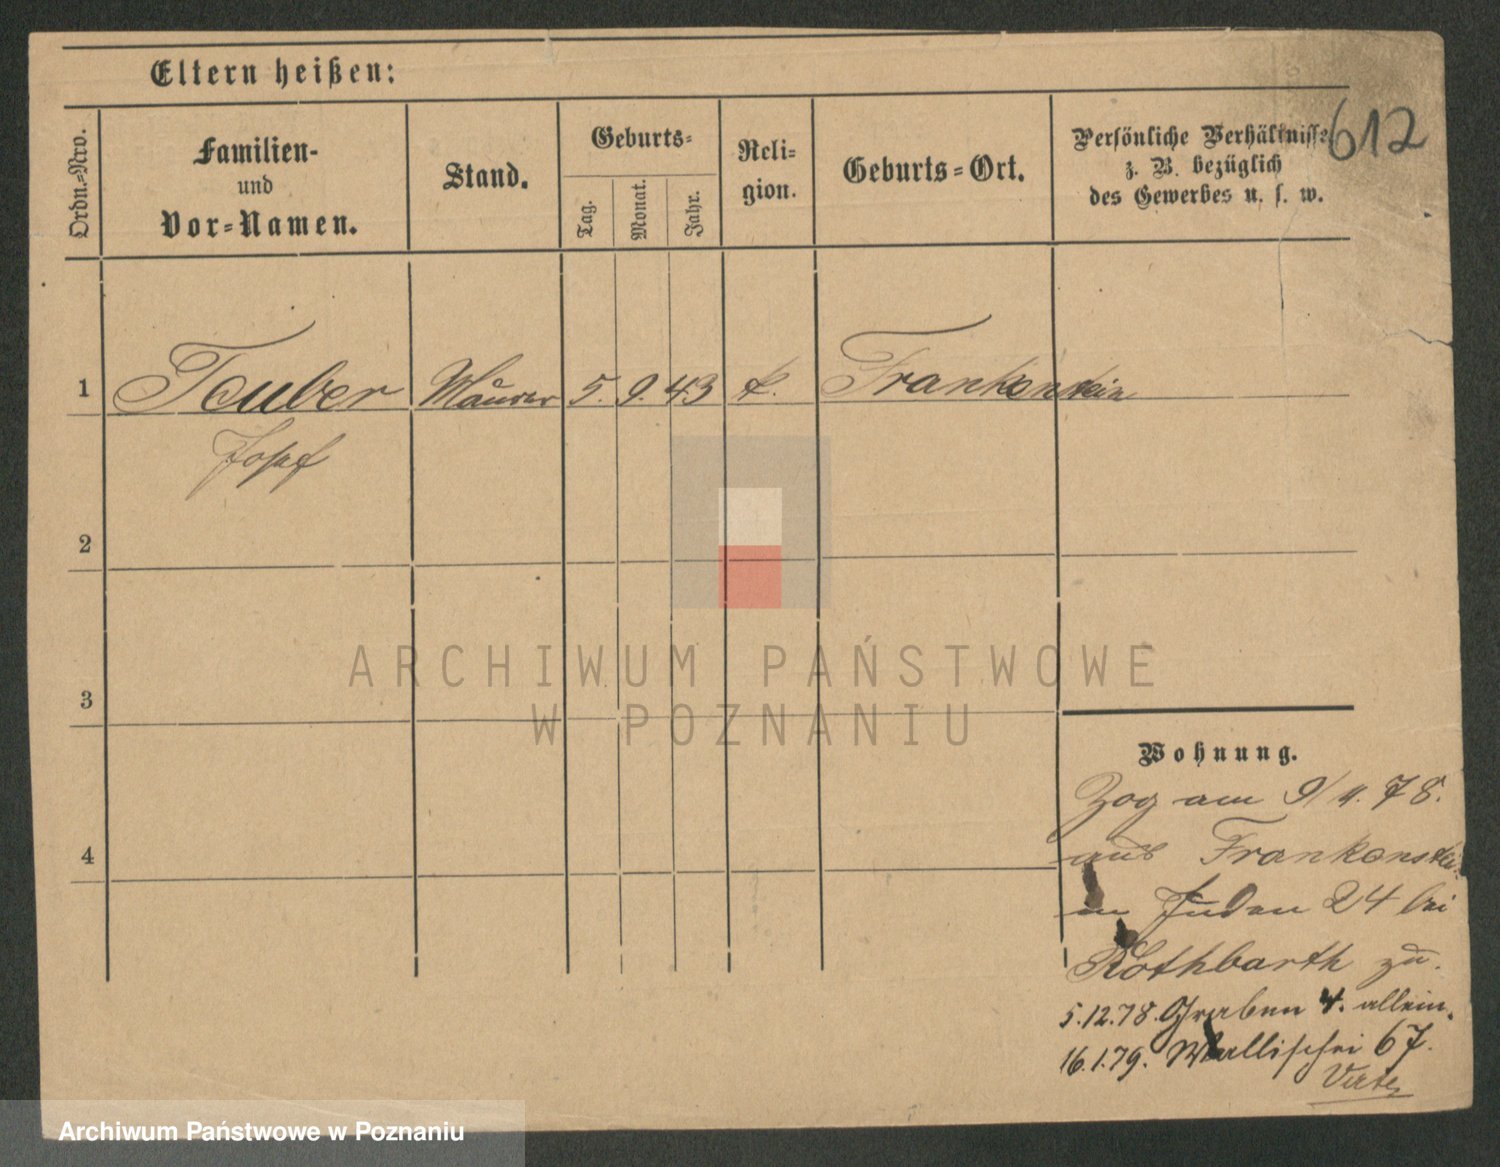 Eltern heißen:
612
Ordn.-Nro.
Familien-
und
Vor-Namen.
Stand.
Geburts-
Tag.
Monat.
Jahr.
Reli-
gion.
Geburts-Ort.
Persönliche Verhältnisse
z. B. bezüglich
des Gewerbes u. s. w.
1 Teuber Maurer 5. 9. 43 k. Frankenstein
Josef
2
3
4
Wohnung.
Zog am 9/ 78.
aus Frankenstei
in Juden 24 bei
Rothbarth zu.
5.12.78. Graben 4. allein.
16.1.79. Wallischei 67.
ARCHIWUM PAŃSTWOWE
W POZNANIU
Archiwum Państwowe w Poznaniu